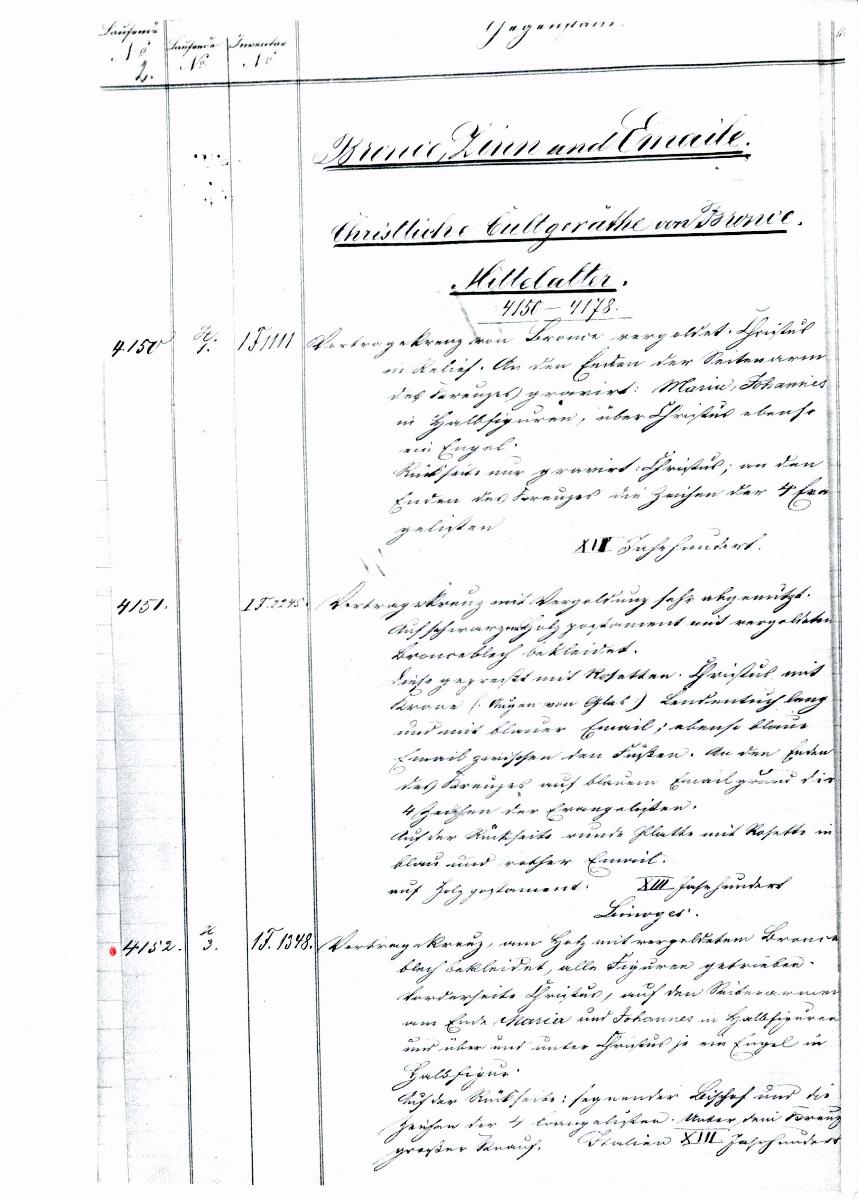 Laufende Laufende Inventar Gegenstand
No No No
2.
Bronce, Zinn und Emaile.
Christliche Cultgeräthe von Bronce.
Mittelalter.
4150 – 4178.
4150 1. I F 1111 Vortragekreuz von Bronce vergoldet. Christus
in Relief. An den Enden der Seitenarm
des Kreuzes gravirt: Maria, Johannes
in Halbfiguren, über Christus ebenso
ein Engel.
Rückseite nur gravirt: Christus; an den
Enden des Kreuzes die Zeichen der 4 Eva
gelisten
XII Jahrhundert.
4151. I F. 2245. Vortragekreuz mit Vergoldung sehr abgenutzt.
Auf schwarzem Holzpostament mit vergoldetem
Bronceblech bekleidet.
Diese gepreßt mit Rosetten. Christus mit
Krone (: Augen von Glas :) Lendentuch lang
und mit blauer Email; ebenso blaue
Email zwischen den Füßen. An den Enden
des Kreuzes auf blauem Emailgrund die
4 Zeichen der Evangelisten.
Auf der Rückseite runde Platte mit Rosette in
blau und rother Email.
auf Holzpostament. XIII Jahrhundert
Limoges.
4152. 3. I F. 1348. Vortragekreuz, am Holz mit vergoldetem Bronce
blech bekleidet, alle Figuren getrieben.
Vorderseite Christus, auf den Seitenarmen
am Ende Maria und Johannes in Halbfiguren
und über und unter Christus je ein Engel in
Halbfigur.
Auf der Rückseite: segnender Bischof und die
Zeichen der 4 Evangelisten. Unter dem Kreuz
großer Knauf. Italien XIII Jahrhundert